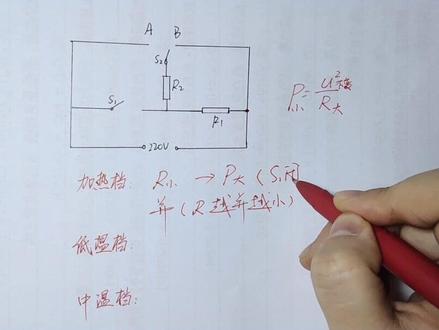 A B
S₂
R₂
S₁
R₁
220V
P小=U²/R大
加热档: R小 → P大 (S₁闭
并(R越并越小)
低温档:
中温档: